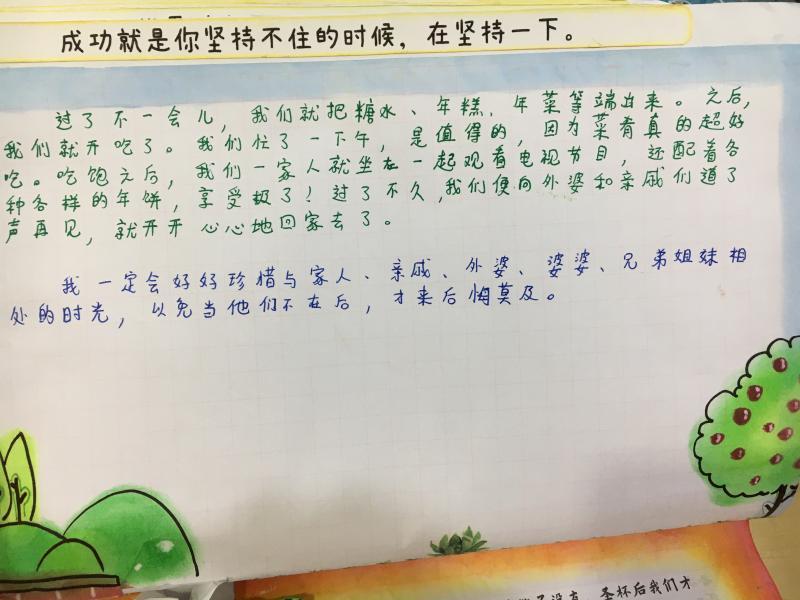 成功就是你坚持不住的时候，在坚持一下。
过了不一会儿，我们就把糖水、年糕，年菜等端出来。之后，
我们就开吃了。我们忙了一下午，是值得的，因为菜肴真的超好
吃。吃饱之后，我们一家人就坐在一起观看电视节目，还配着各
种各样的年饼，享受极了！过了不久，我们便向外婆和亲戚们道了
声再见，就开开心心地回家去了。
我一定会好好珍惜与家人、亲戚、外婆、婆婆、兄弟姐妹相
处的时光，以免当他们不在后，才来后悔莫及。
圣杯后我们才